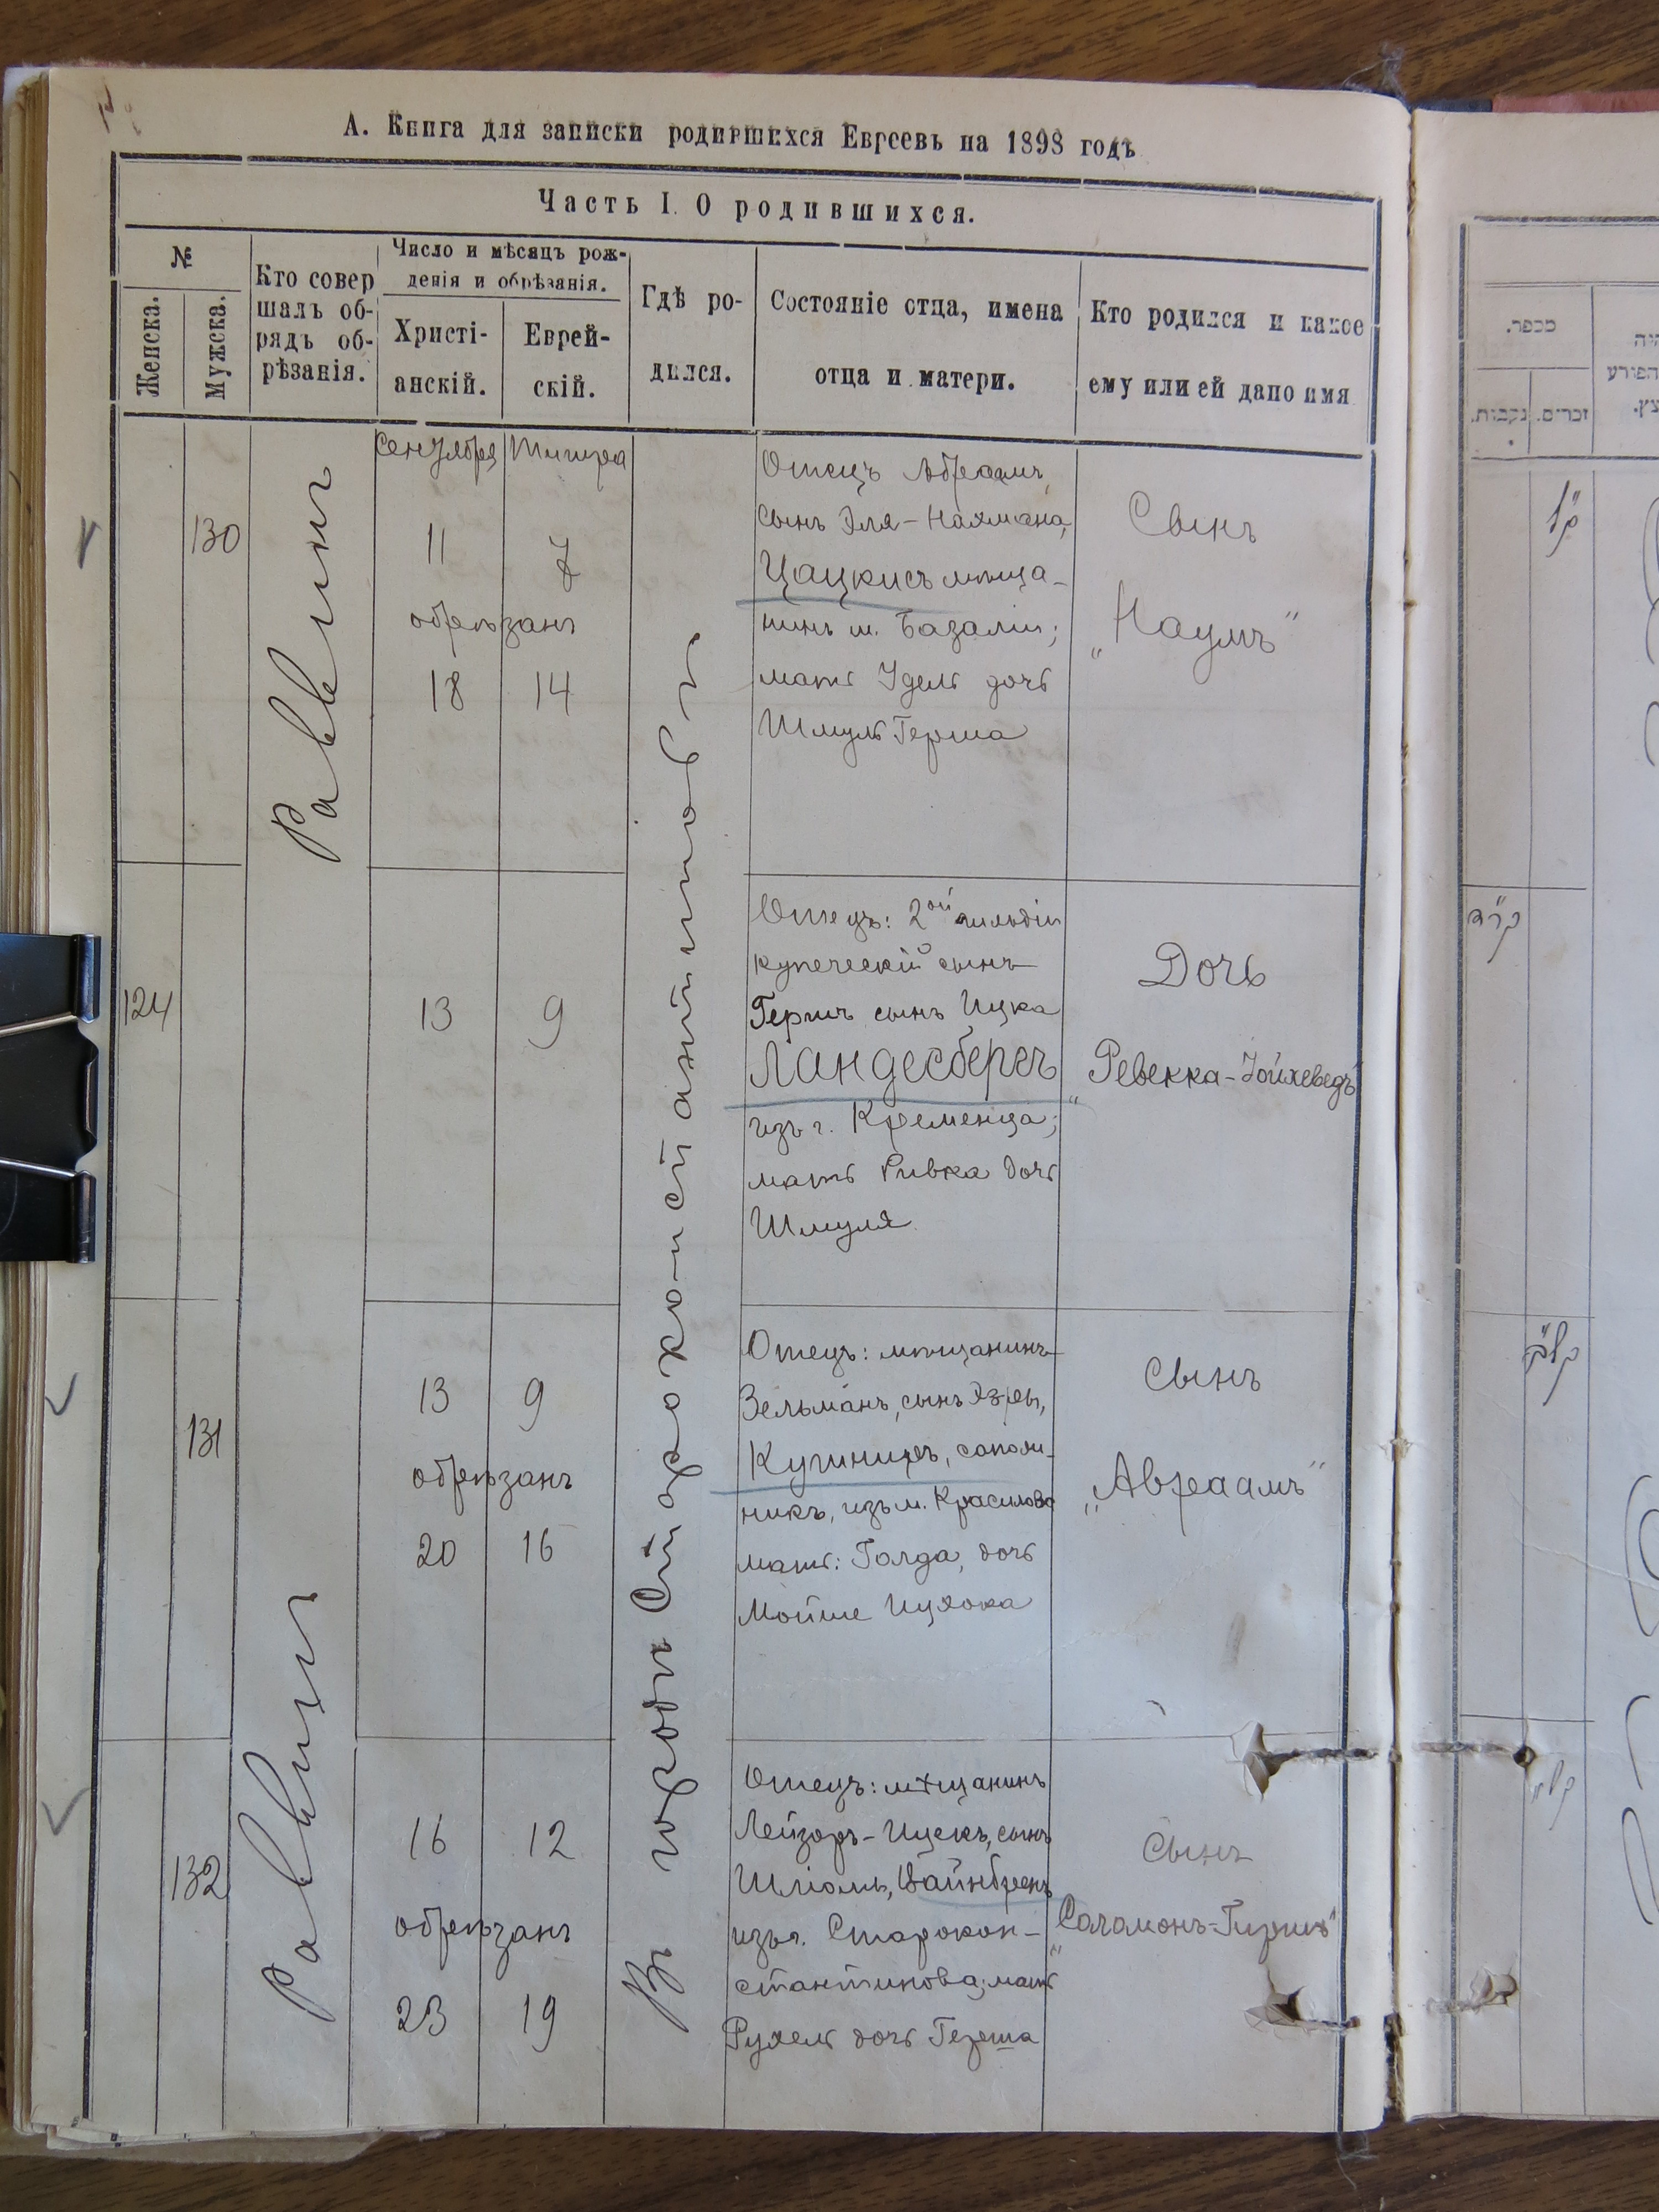 А. Книга для записки родившихся Евреевъ на 1898 годъ
Часть I. О родившихся.
№
Женска.
Мужска.
Кто совер
шалъ об-
рядъ об-
рѣзанія.
Число и мѣсяцъ рож-
денія и обрѣзанія.
Христі-
анскій.
Еврей-
скій.
Гдѣ ро-
дился.
Состояніе отца, имена
отца и матери.
Кто родился и какое
ему или ей дано имя
Въ городѣ Староконстантиновѣ
130
Раввинъ
Сентября
Тишра
11
7
обрѣзанъ
18
14
Отецъ Абрамъ
сынъ Эля-Нахмана,
Цацкисъ мѣща-
нинъ м. Базаліи;
мать Удель дочь
Шмуль Герша
Сынъ
„Наумъ"
124
13
9
Отецъ: 2ой гильдіи
купеческій сынъ
Гершъ сынъ Ицка
Ландесбергъ
изъ г. Кременца;
мать Ривка дочь
Шмуля
Дочь
„Ревекка-Іойхеведъ"
131
13
9
обрѣзанъ
20
16
Отецъ: мѣщанинъ
Зельманъ, сынъ Эзры,
Кушниръ, сапож-
никъ, изъ м. Красилова
мать: Голда, дочь
Мойше Ицхока
Сынъ
„Авраамъ"
132
Раввинъ
16
12
обрѣзанъ
23
19
Отецъ: мѣщанинъ
Лейзоръ-Ицекъ, сынъ
Шліомы, Вайнбренъ
изъ г. Старокон-
стантинова; мать
Рухель дочь Герша
Сынъ
„Соломонъ-Гиршъ"
מספר.
נקבות.
זכרים.
ק"ל
קכ"ד
קל"א
קל"ב